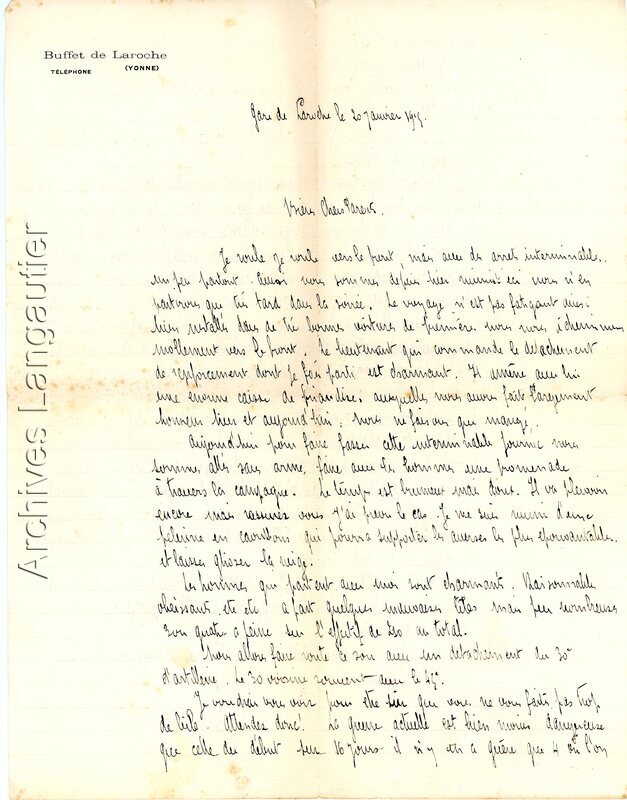 Buffet de Laroche
TÉLÉPHONE (YONNE)
Gare de Laroche le 20 Janvier 1915.
Mes Chers Parents.
Je roule je roule vers le front, mais avec des arrets interminables
un peu partout. Ainsi nous sommes depuis hier minuit ici nous n'en
partirons que très tard dans la soirée. Le voyage n'est pas fatigant aussi
bien installés dans de très bonnes voitures de premières nous nous acheminons
mollement vers le front. Le lieutenant qui commande le detachement
de renforcement dont je fais parti est charmant. Il amène avec lui
une enorme caisse de friandises auxquelles nous avons fait largement
honneur hier et aujourd'hui, nous ne faisons que manger.
Aujourd'hui pour faire passer cette interminable journée nous
sommes allés sans arme, faire avec les hommes une promenade
à travers la campagne. Le temps est brumeux mais doux. Il va pleuvoir
encore mais rassurez vous j'ai prévu le cas. Je me suis muni d'une
pelerine en caoutchouc qui pourra supporter les averses les plus epouvantables
et laisser glisser la neige.
Les hommes qui partent avec moi sont charmants. Raisonnables
obeissants etc etc à part quelques mauvaises têtes mais peu nombreuses
3 ou quatre à peine sur l'effectif de 250 au total.
Nous allons faire route ce soir avec un detachement du 30e
d'artillerie. Le 30 voisine souvent avec le 45e.
Je voudrais vous voir pour etre sûr que vous ne vous faites pas trop
de bile. Attendez donc! La guerre actuelle est bien moins dangereuse
que celle du début sur 16 jours il n'y en a guère que 4 où l'on
Archives Langautier